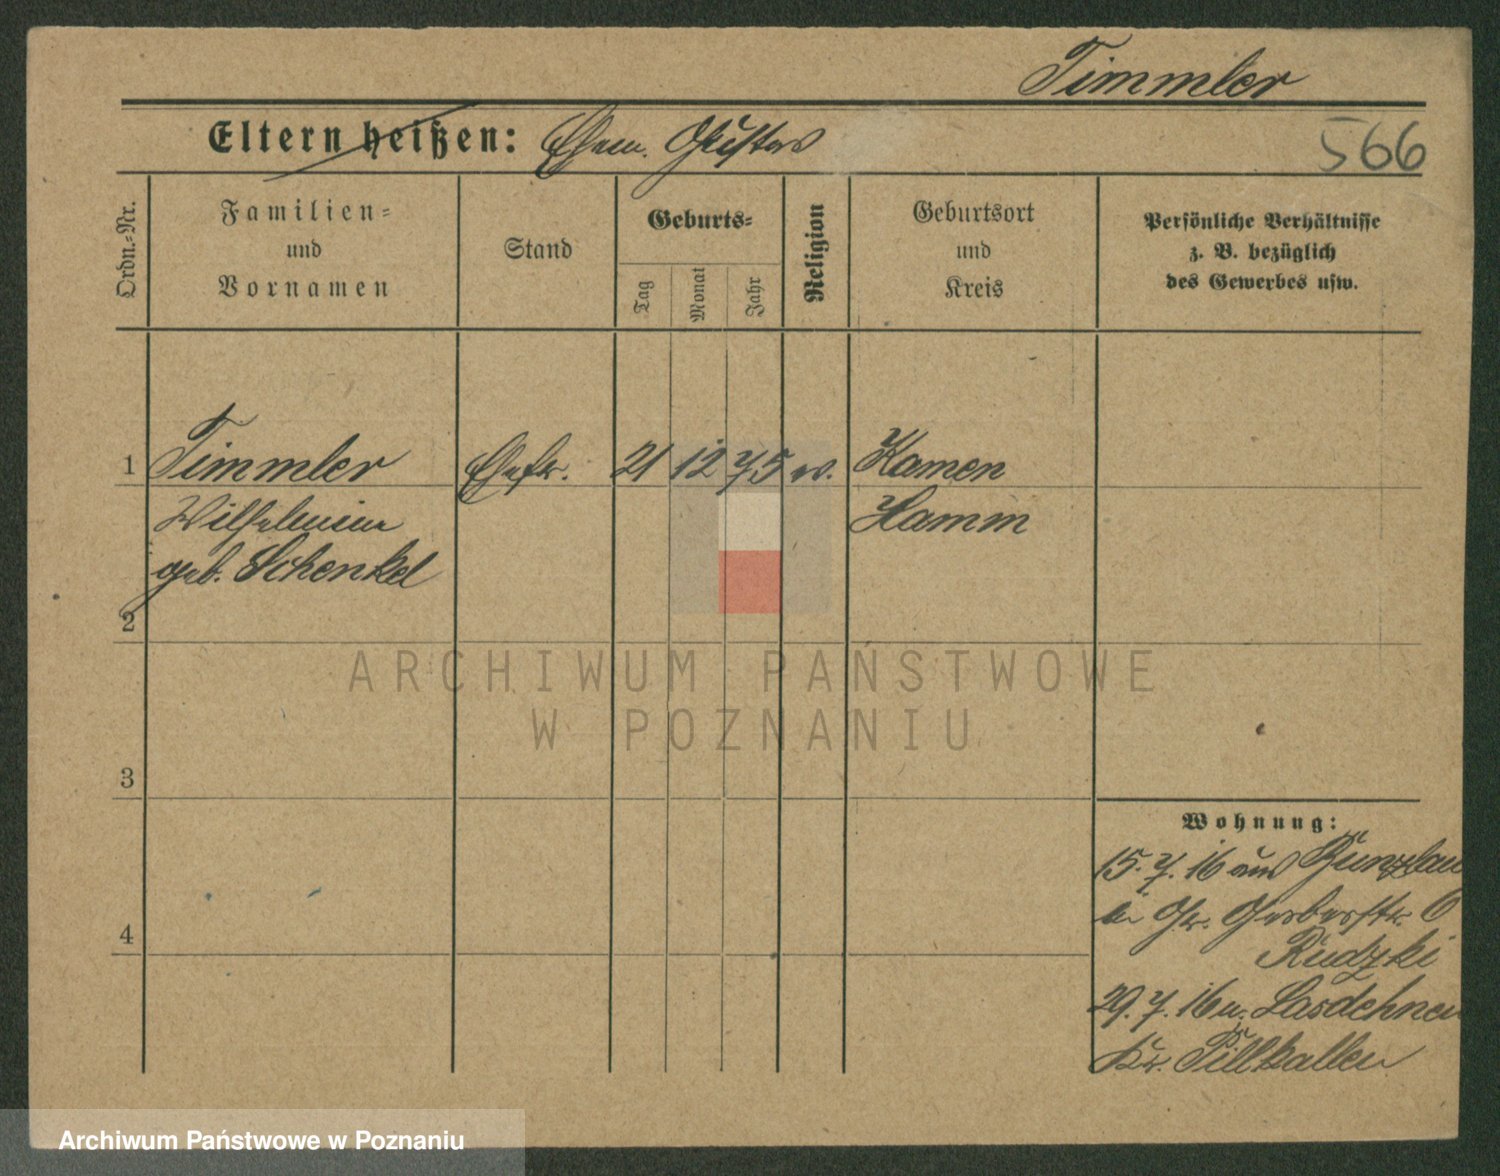 Timmler
Eltern heißen: Ehem. Gustav
566
Ordn.-Nr.
Familien-
und
Vornamen
Stand
Geburts-
Tag
Monat
Jahr
Religion
Geburtsort
und
Kreis
Persönliche Verhältnisse
z. B. bezüglich
des Gewerbes usw.
1 Timmler Ehefr. 21 12 75 ev. Kamen
Wilhelmine Hamm
geb. Schenkel
2
3
4
Wohnung:
15.7.16 aus Bunzlau
in Gr. Gerberstr. 6
Rudzki
29.7.16 n. Lasdehnen
Kr. Pillkallen
ARCHIWUM PAŃSTWOWE
W POZNANIU
Archiwum Państwowe w Poznaniu